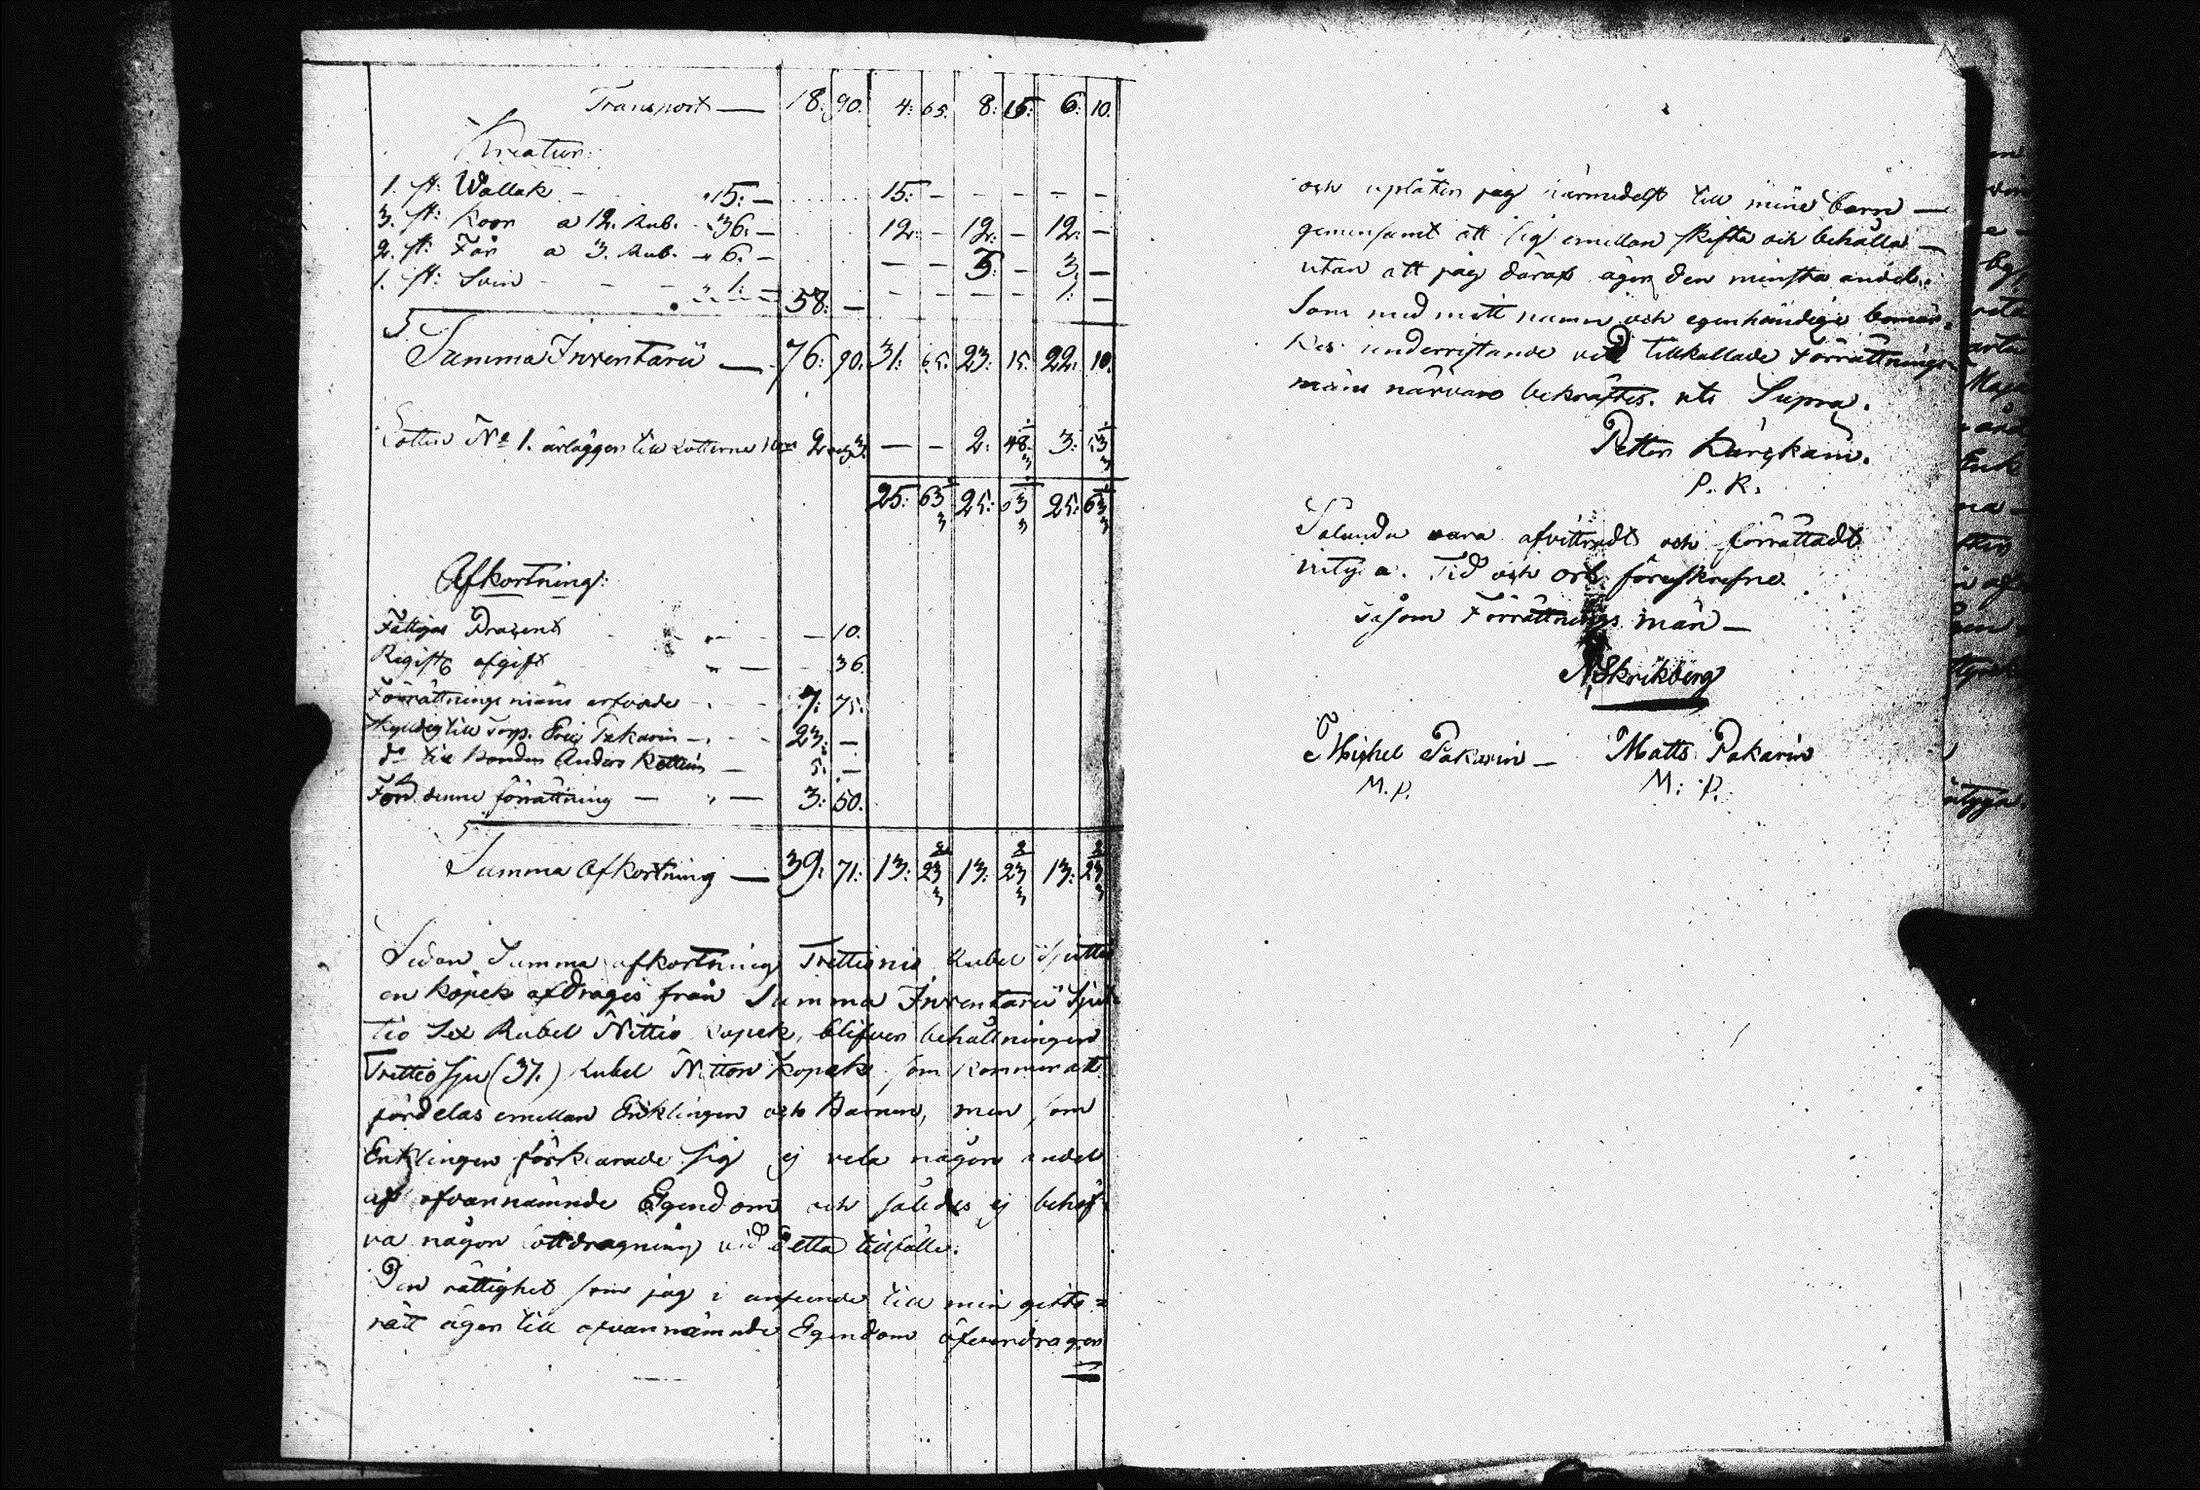 Transport — 18: 90. 4: 65. 8: 15: 6: 10.
Kreatur:
1. st: Wallak - „ 15: — 15: - - - - -
3. st: Koor a 12. Rub. „ 36. — 12: - 12: - 12: -
2. st: Får a 3. Rub. „ 6: — - - 3: - 3: -
1. st: Svin - - - „ 1: — 58: — - - - - 1: -
Summa Inventarii — 76: 90. 31: 65. 23: 15. 22: 10.
Lotten No 1. erlägger till Lotterne — - 2: 48 3: 53
25: 63 25: 63 25: 63
Afkortning:
Fattigas Procent — 10.
Regist. afgift — 36.
Förrättnings mäns arfvode - 7: 75.
Skyldig till Torp. Eric Pakarin - 23: —
do till Bonden Anders — 5. —
För denne förrättning — „ — 3: 50.
Summa Afkortning — 39: 71: 13: 23 2/3 13: 23 2/3 13: 23 2/3
Sedan Summa afkortning Trettionio Rubel Sjutti
en kopek afdragés från Summa Inventarii Sjut-
tio Sex Rubel Nittio kopek, blifver behållningen
Trettiosju (37.) Rubel Nitton kopek som kommer att
fördelas emellan Enklingen och Barnen, men som
Enklingen förklarade sig ej vela någon andel
af ofvannämnde Egendom och således ej behöf-
va någon lottdragning vid detta tillfälle.
Den rättighet som jag i anseende till min gifto-
rätt äger till ofvannämnde Egendom öfverdrager
och uplåter jag härmedelst till mine barn —
gemensamt att sig emellan skifta och behålla —
utan att jag däraf äger den minsta andel.
Som med mitt namn och egenhändige bomär-
kes underristande vid tillkallade Förrättnings-
mäns närvaro bekräftes. uts Supra.
Petter
P. K.
Sålunda vara afvittradt och förrättadt
intyga. Tid och ort föreskrefne.
såsom Förrättnings män —
N Skrikberg
Michel Pakarin — Matts Pakarin
M. P. M: P.